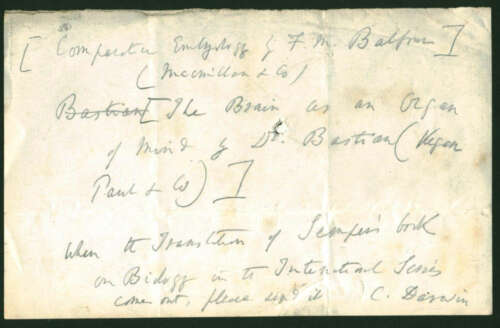 [ Comparative Embryology by F. M. Balfour ]
( Macmillan & Co )
Bastian [ The Brain as an Organ
of Mind by Dr. Bastian ( Kegan
Paul & Co ) ]
When the Translation of Semper's book
on Biology in the International Series
come out, please send it C. Darwin